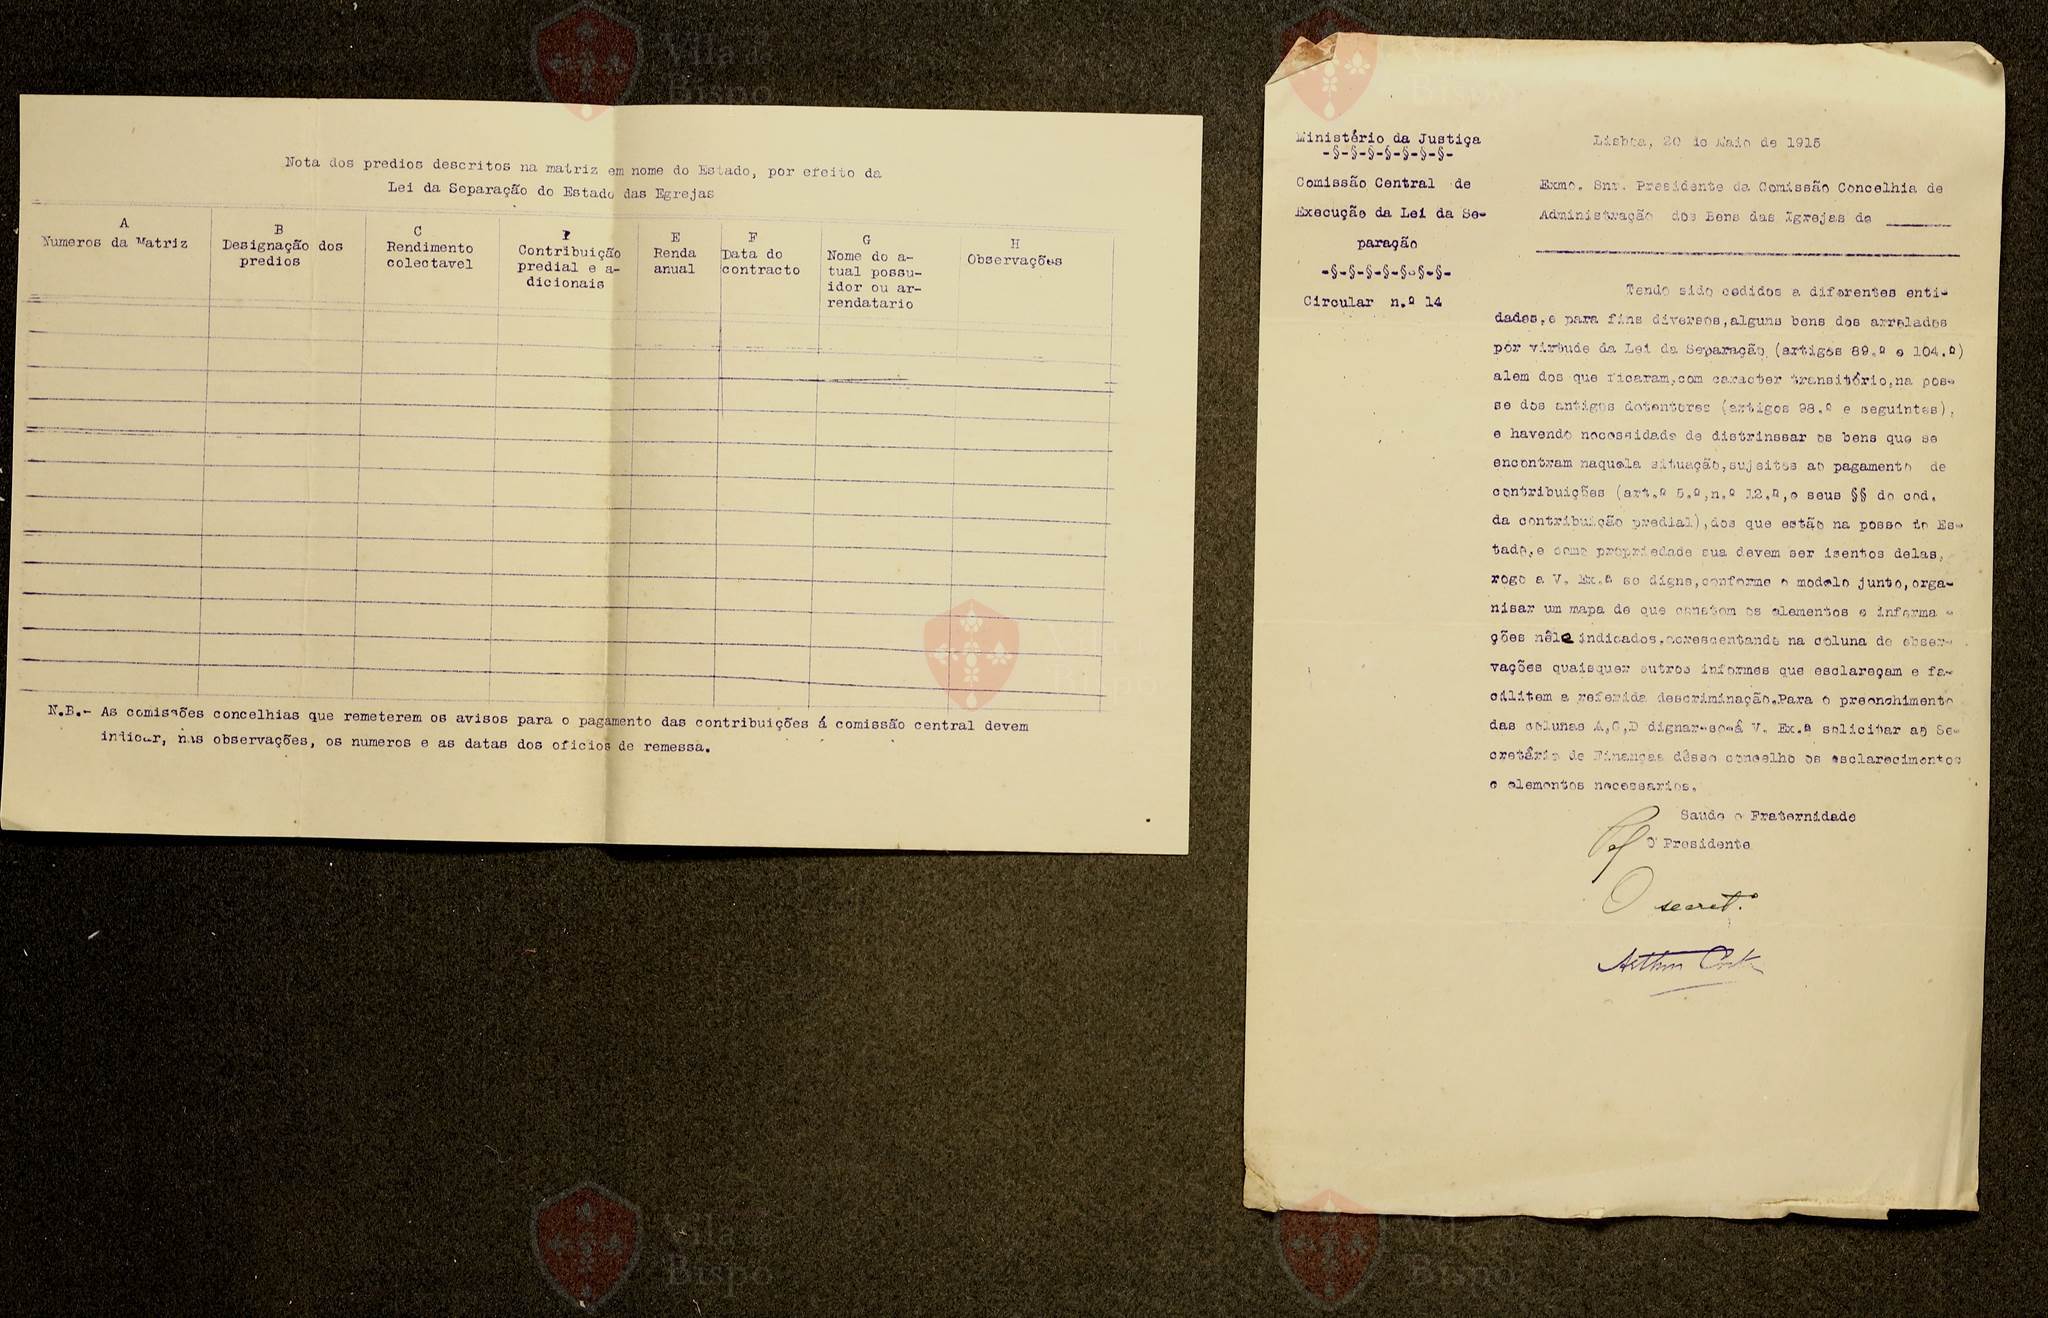 Nota dos predios descritos na matriz em nome do Estado, por efeito da
Lei da Separação do Estado das Egrejas
A
Numeros da Matriz
B
Designação dos
predios
C
Rendimento
colectavel
D
Contribuição
predial e a-
dicionais
E
Renda
anual
F
Data do
contracto
G
Nome do a-
tual possu-
idor ou ar-
rendatario
H
Observações
N.B.- As comissões concelhias que remeterem os avisos para o pagamento das contribuições á comissão central devem
indicar, nas observações, os numeros e as datas dos oficios de remessa.
Ministério da Justiça
-§-§-§-§-§-§-§-
Comissão Central de
Execução da Lei da Se-
paração
-§-§-§-§-§-§-§-
Circular n.º 14
Lisboa, 20 de Maio de 1915
Exmo. Snr. Presidente da Comissão Concelhia de
Administração dos Bens das Igrejas de
Tendo sido cedidos a diferentes enti-
dades, e para fins diversos, alguns bens dos arrolados
por virtude da Lei da Separação (artigos 89.º e 104.º)
alem dos que ficaram, com caracter transitório, na pos-
se dos antigos detentores (artigos 98.º e seguintes),
e havendo necessidade de distrinssar os bens que se
encontram naquela situação, sujeitos ao pagamento de
contribuições (art.º 5.º, n.º 12.º, e seus §§ do cod.
da contribuição predial), dos que estão na posse do Es-
tado, e como propriedade sua devem ser isentos delas,
rogo a V. Ex.ª se digne, conforme o modelo junto, orga-
nisar um mapa de que constem os elementos e informa -
ções nêle indicados, acrescentando na coluna de obser-
vações quaisquer outros informes que esclareçam e fa-
cilitem a referida descriminação. Para o preenchimento
das colunas A,C,D dignar-se-á V. Ex.ª solicitar ao Se-
cretário de Finanças dêsse concelho os esclarecimentos
e elementos necessarios.
Saude e Fraternidade
Pel O Presidente
O secret.º
Arthur Costa
Vila do
Bispo
Vila do
Bispo
Vila do
Bispo
Vila do
Bispo
Vila do
Bispo